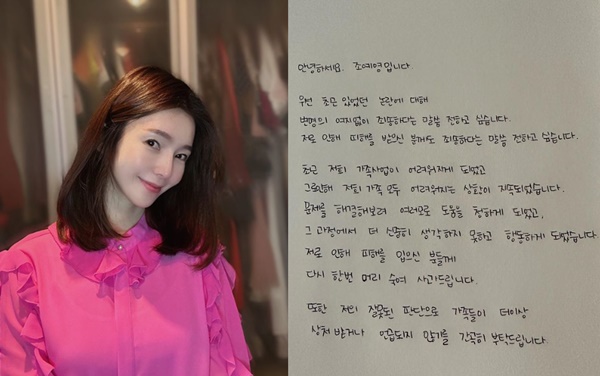 안녕하세요. 조예영입니다.
우선 최근 있었던 논란에 대해
변명의 여지없이 죄송하다는 말씀 전하고 싶습니다.
저로 인해 피해를 받으신 분께도 죄송하다는 말씀 전하고 싶습니다.
최근 저희 가족사업이 어려워지게 되었고
그로인해 저희 가족 모두 어려워지는 상황이 지속되었습니다.
문제를 해결해보려 여러모로 도움을 청하게 되었고,
그 과정에서 더 신중히 생각하지 못하고 행동하게 되었습니다
저로 인해 피해를 입으신 분들께
다시 한번 머리 숙여 사과드립니다.
또한 저의 잘못된 판단으로 가족들이 더이상
상처 받거나 언급되지 않기를 간곡히 부탁드립니다.